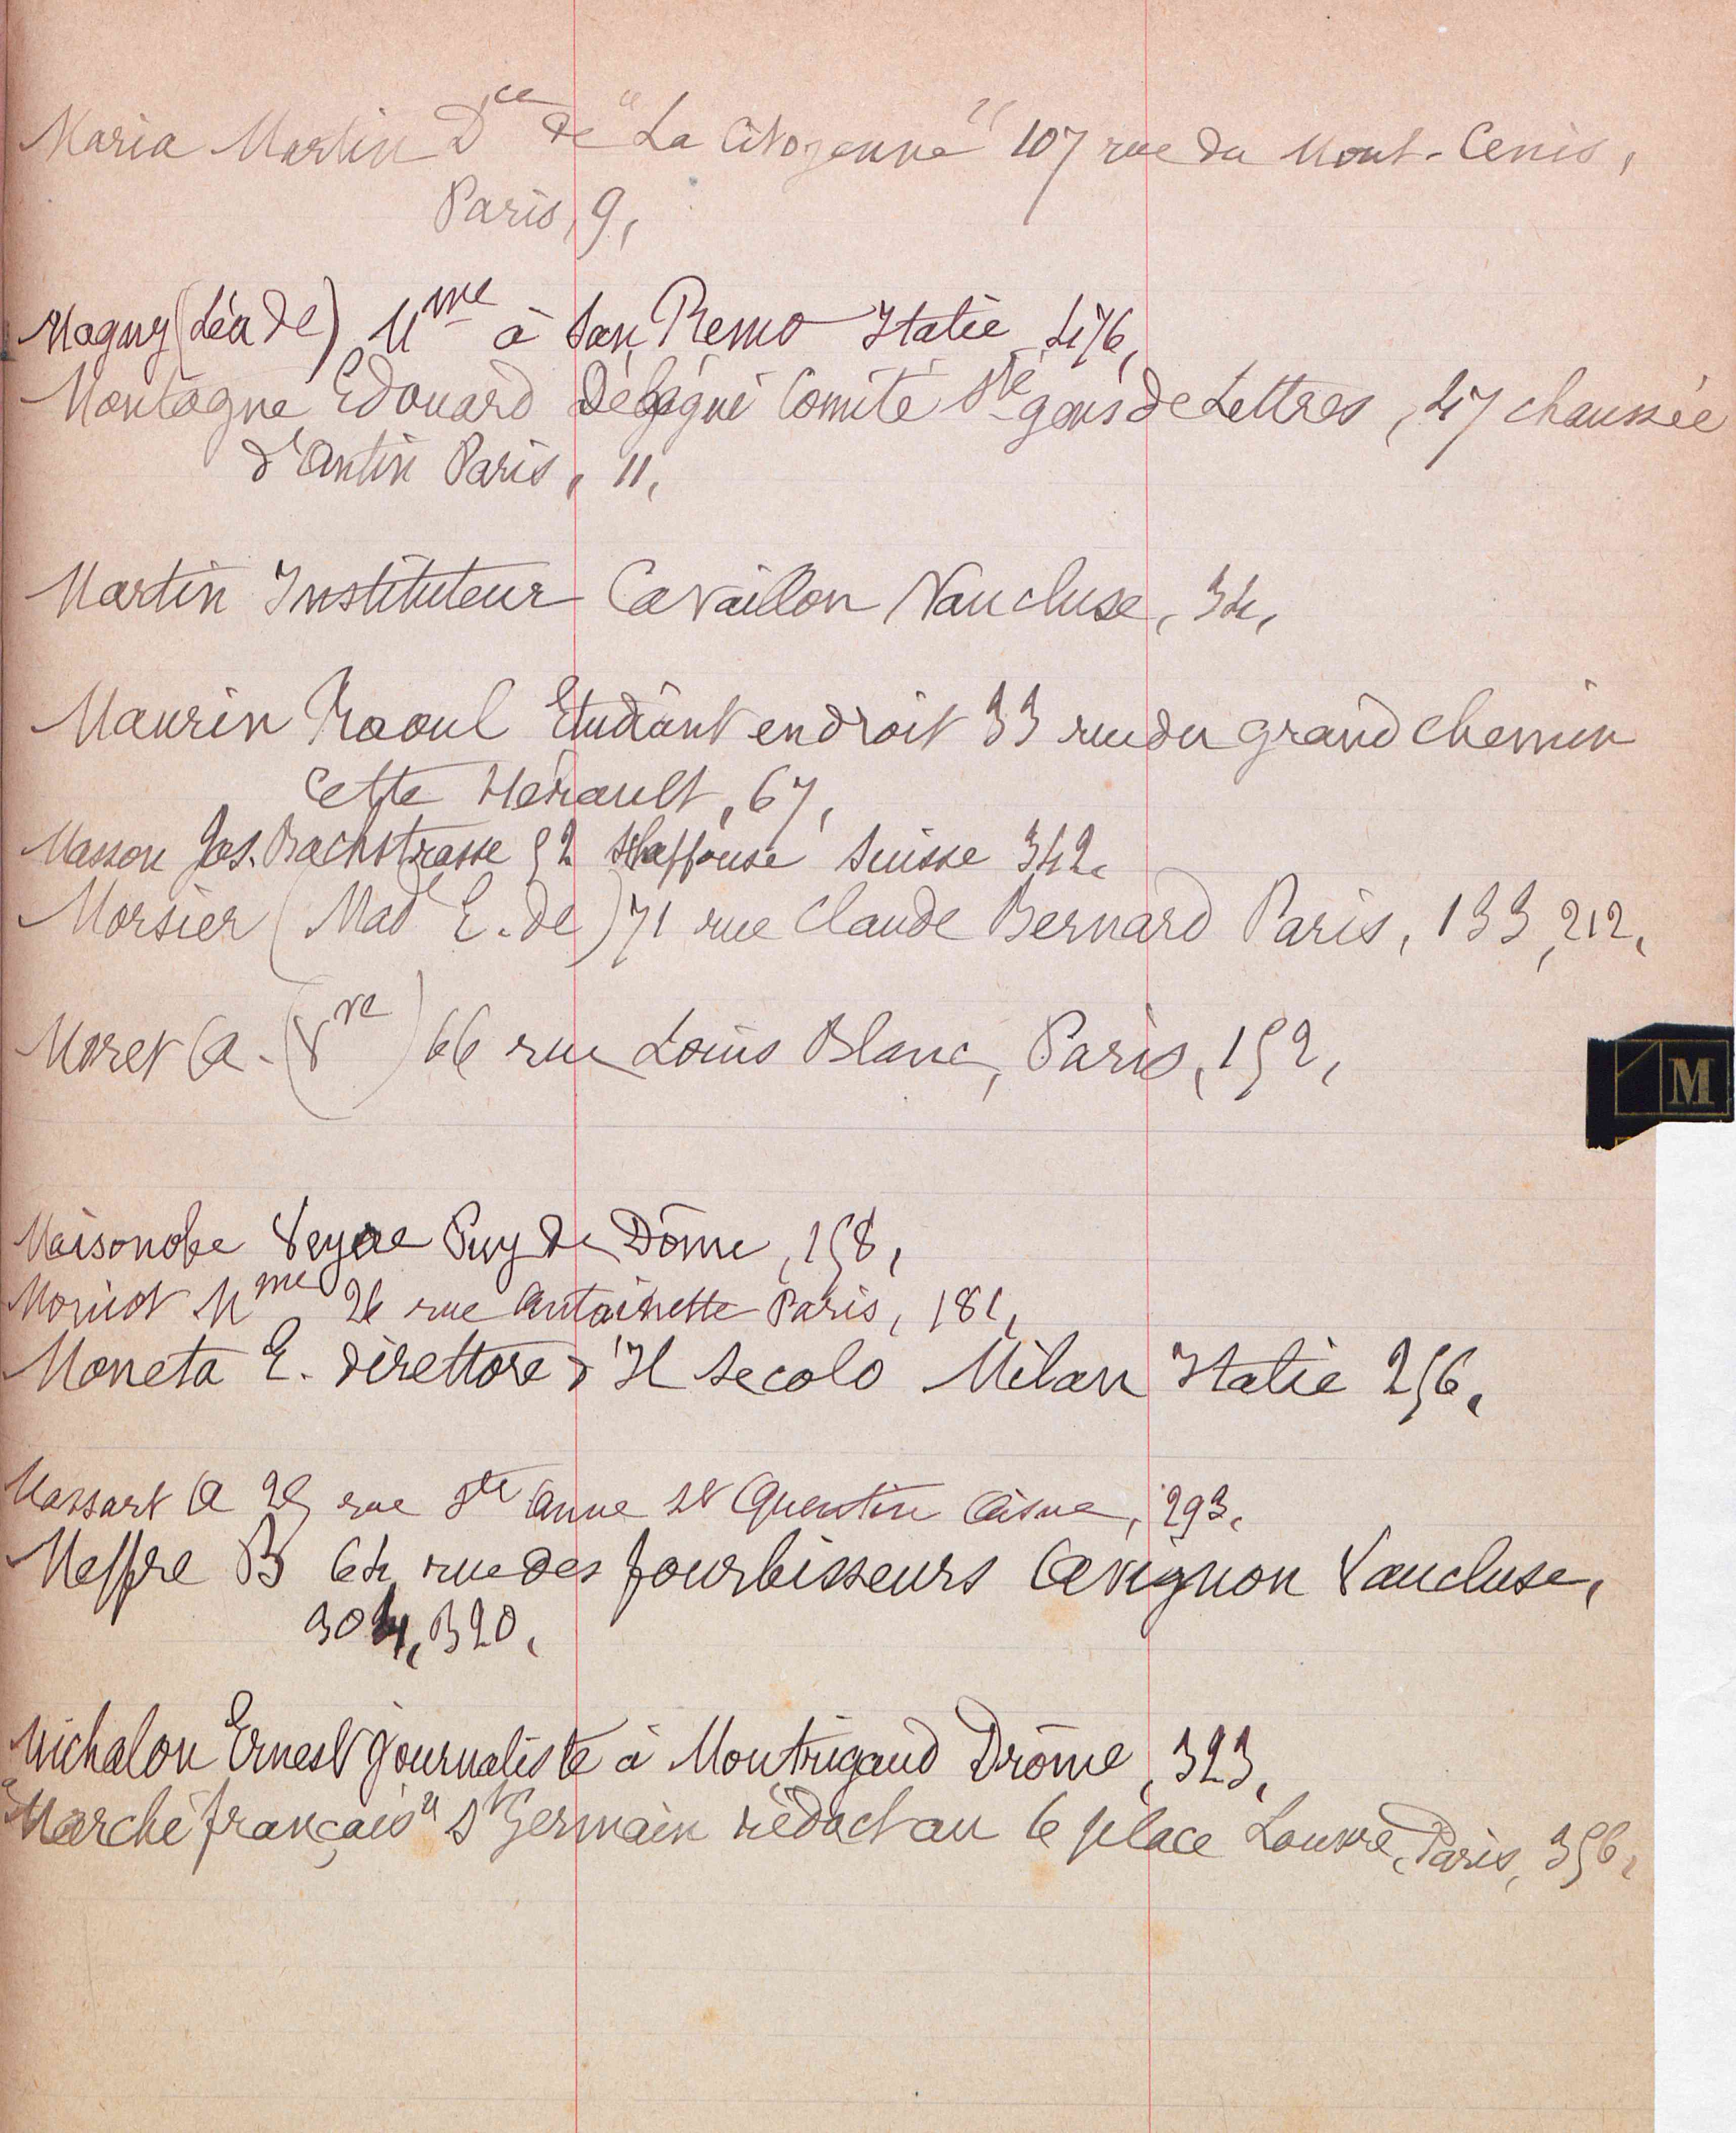 Maria Martin Dce de "La Citoyenne" 107 rue du Mont-Cenis,
Paris, 9,
Magny (Léa de) Mme à San Remo Italie, 476,
Montagne Edouard Délégué Comité Sté gens de Lettres, 47 chaussée
d'Antin Paris, 11,
Martin Instituteur Cavaillon Vaucluse, 34,
Maurin Raoul Etudiant en droit 33 rue du grand chemin
Cette Hérault, 67,
Masson Jos. Bachstrasse 52 Shaffouse Suisse 342,
Morsier (Made E. de) 71 rue Claude Bernard Paris, 133, 212,
Moret A. (Vve) 66 rue Louis Blanc, Paris, 152,
M
Maisonobe Veyre Puy de Dôme, 158,
Moniot Mme 26 rue Antoinette Paris, 181,
Moneta E. direttore d'Il Secolo Milan Italie 256,
Massart A 25 rue Ste Anne St Quentin Aisne, 293,
Meffre B 64 rue des fourbisseurs Avignon Vaucluse,
304, 320,
Michalon Ernest journaliste à Montrigaud Drôme, 323,
"Marché français" St Germain rédact au 6 place Louvre, Paris, 356,